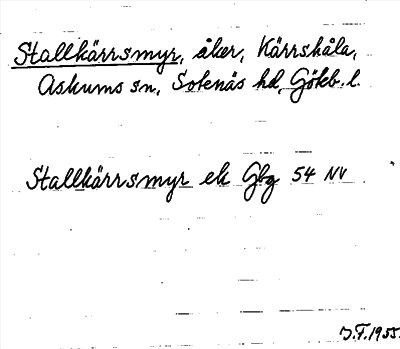 Stallkärrsmyr, åker, Kärrskåla,
Askums sn, Sotenäs hd, Gökb. l.
Stallkärrsmyr ek Gbg 54 NV
J.F. 1955.